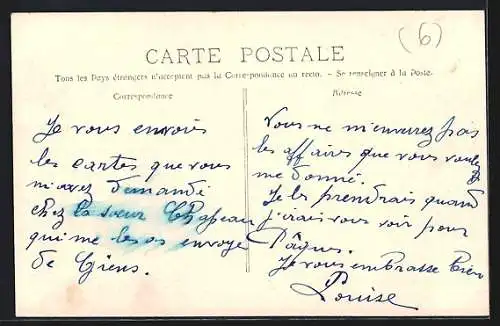 (6)
CARTE POSTALE
Tous les Pays étrangers n'acceptent pas la Correspondance au recto. - Se renseigner à la Poste.
Correspondance
Je vous envoie
les cartes que vous
m'avez demandé
chez la sœur Chapeau
qui me les as envoyé
de Giens.
Adresse
Vous ne m'enverez pas
les affaires que vous voulez
me donné.
Je les prendrais quand
j'irais vous voir pour
Pâques.
Je vous embrasse bien
Louise